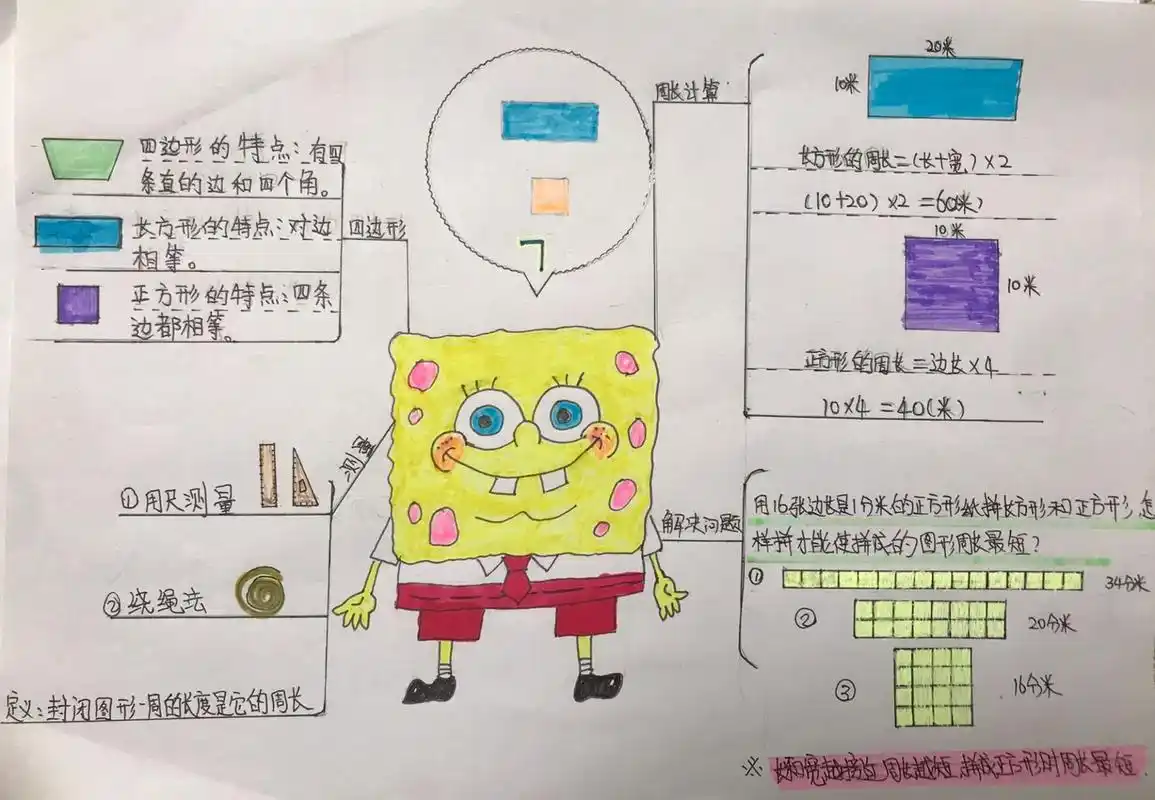 四边形的特点：有四
条直的边和四个角。
长方形的特点：对边
相等。
正方形的特点：四条
边都相等。
四边形
测量
①用尺测量
②绕绳法
定义：封闭图形一周的长度是它的周长
周长计算
20米
10米
长方形的周长=(长+宽)×2
(10+20)×2=60(米)
10米
10米
正方形的周长=边长×4
10×4=40(米)
解决问题
用16张边长是1分米的正方形纸拼长方形和正方形,怎
样拼才能使拼成的图形周长最短?
① 34分米
② 20分米
③ 16分米
※ 长和宽越接近,周长越短,拼成正方形时周长最短.